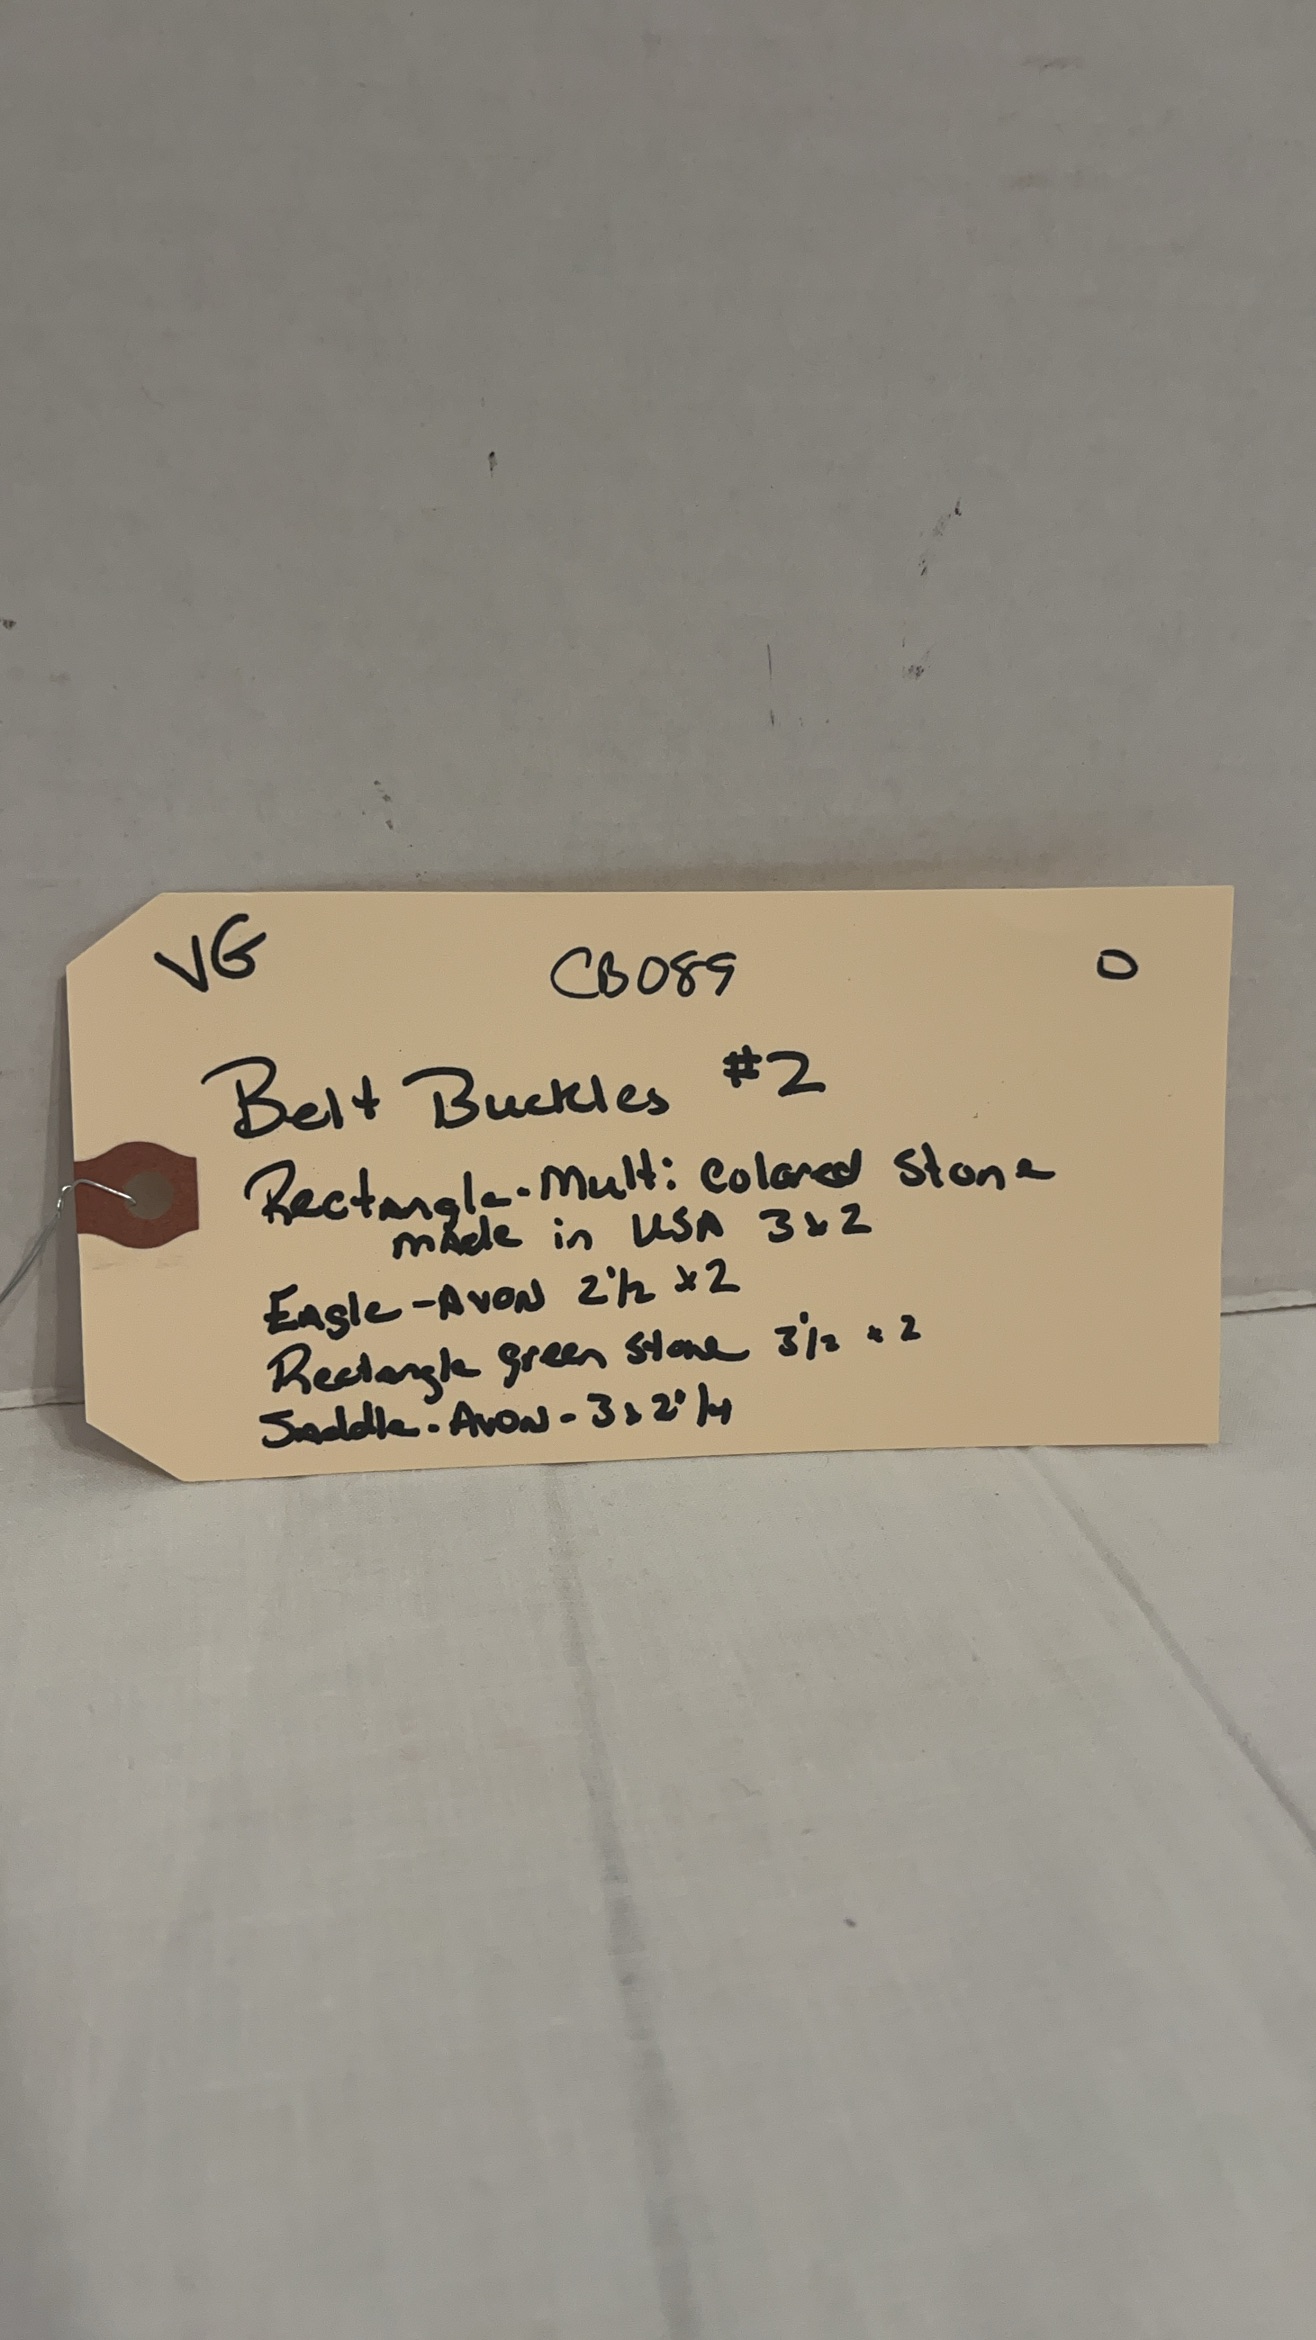 VG CB089 O
Belt Buckles #2
Rectangle-Multi Colored Stone
made in USA 3x2
Eagle-Avon 2 1/2 x2
Rectangle green stone 3 1/2 x 2
Saddle-Avon-3x2 1/4